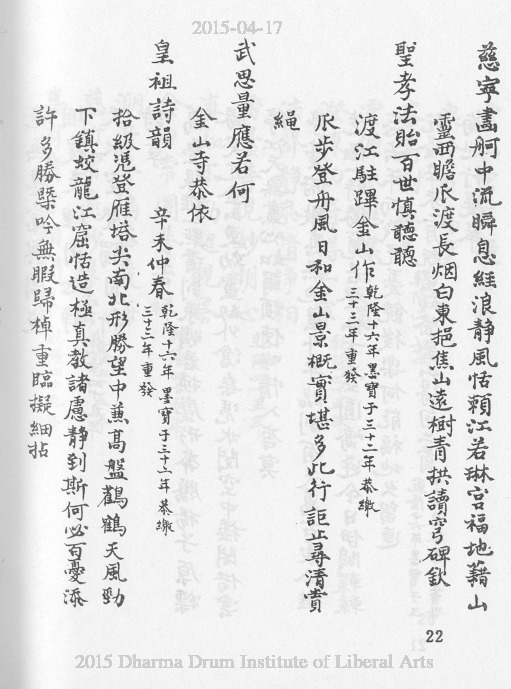 2015-04-17
慈寧畵舸中流瞬息經浪靜風恬賴江若琳宮福地藉山
靈西瞻瓜渡長烟白東挹焦山遠樹青拱讀穹碑欽
聖孝法貽百世慎聽聽
渡江駐蹕金山作 乾隆十六年墨寶于三十二年恭繳
三十三年重發
瓜步登舟風日和金山景概實堪多此行詎止尋清賞
繩
武思量應若何
金山寺恭依
皇祖詩韻 辛未仲春 乾隆十六年墨寶于三十二年恭繳
三十三年重發
拾級凭登雁塔尖南北形勝望中兼高盤鸛鶴天風勁
下鎮蛟龍江窟恬造極真教諸慮靜到斯何必百憂添
許多勝槩吟無暇歸棹重臨擬細拈
22
2015 Dharma Drum Institute of Liberal Arts